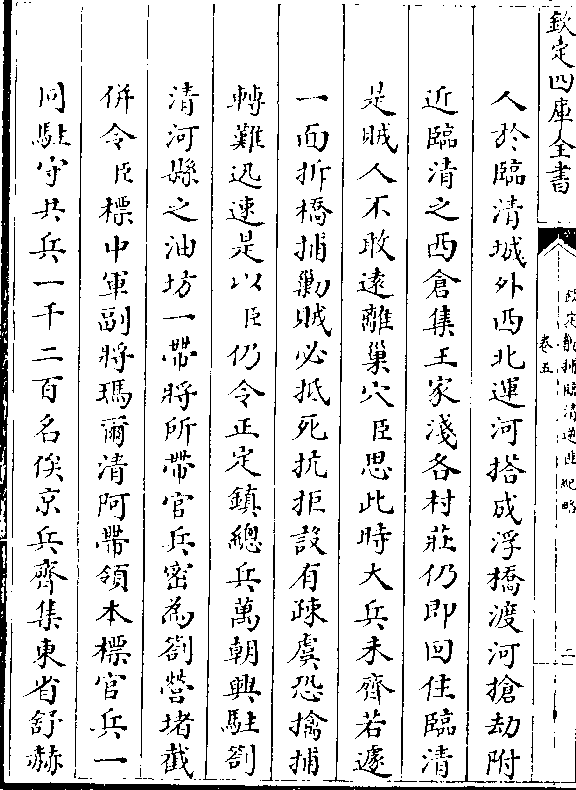 欽定四庫全書
欽定勦捕臨清逆匪紀略
卷五
二
人於臨清城外西北運河搭成浮橋渡河搶劫附
近臨清之西倉集王家淺各村莊仍即回住臨清
是賊人不敢遠離巢穴臣思此時大兵未齊若遽
一面拆橋捕勦賊必抵死抗拒設有疎虞恐擒捕
轉難迅速是以臣仍令正定鎮總兵萬朝興駐劄
清河縣之油坊一帶將所帶官兵密為劄營堵截
併令臣標中軍副將瑪爾清阿帶領本標官兵一
同駐守共兵一千二百名俟京兵齊集東省舒赫